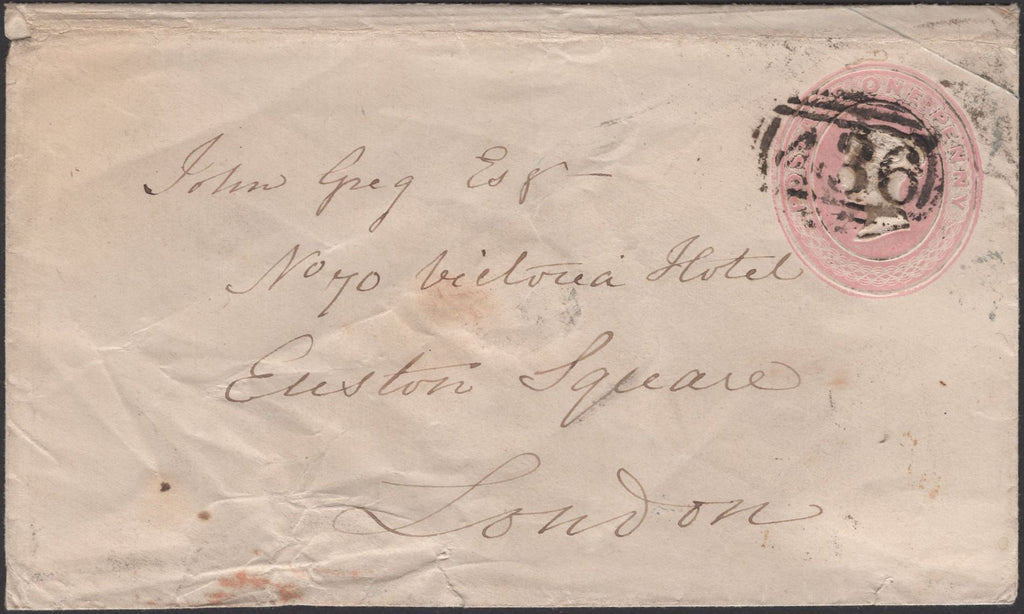 POSTAGE ONE PENNY
36
John Greg Esqr
No 70 Victoria Hotel
Euston Square
London